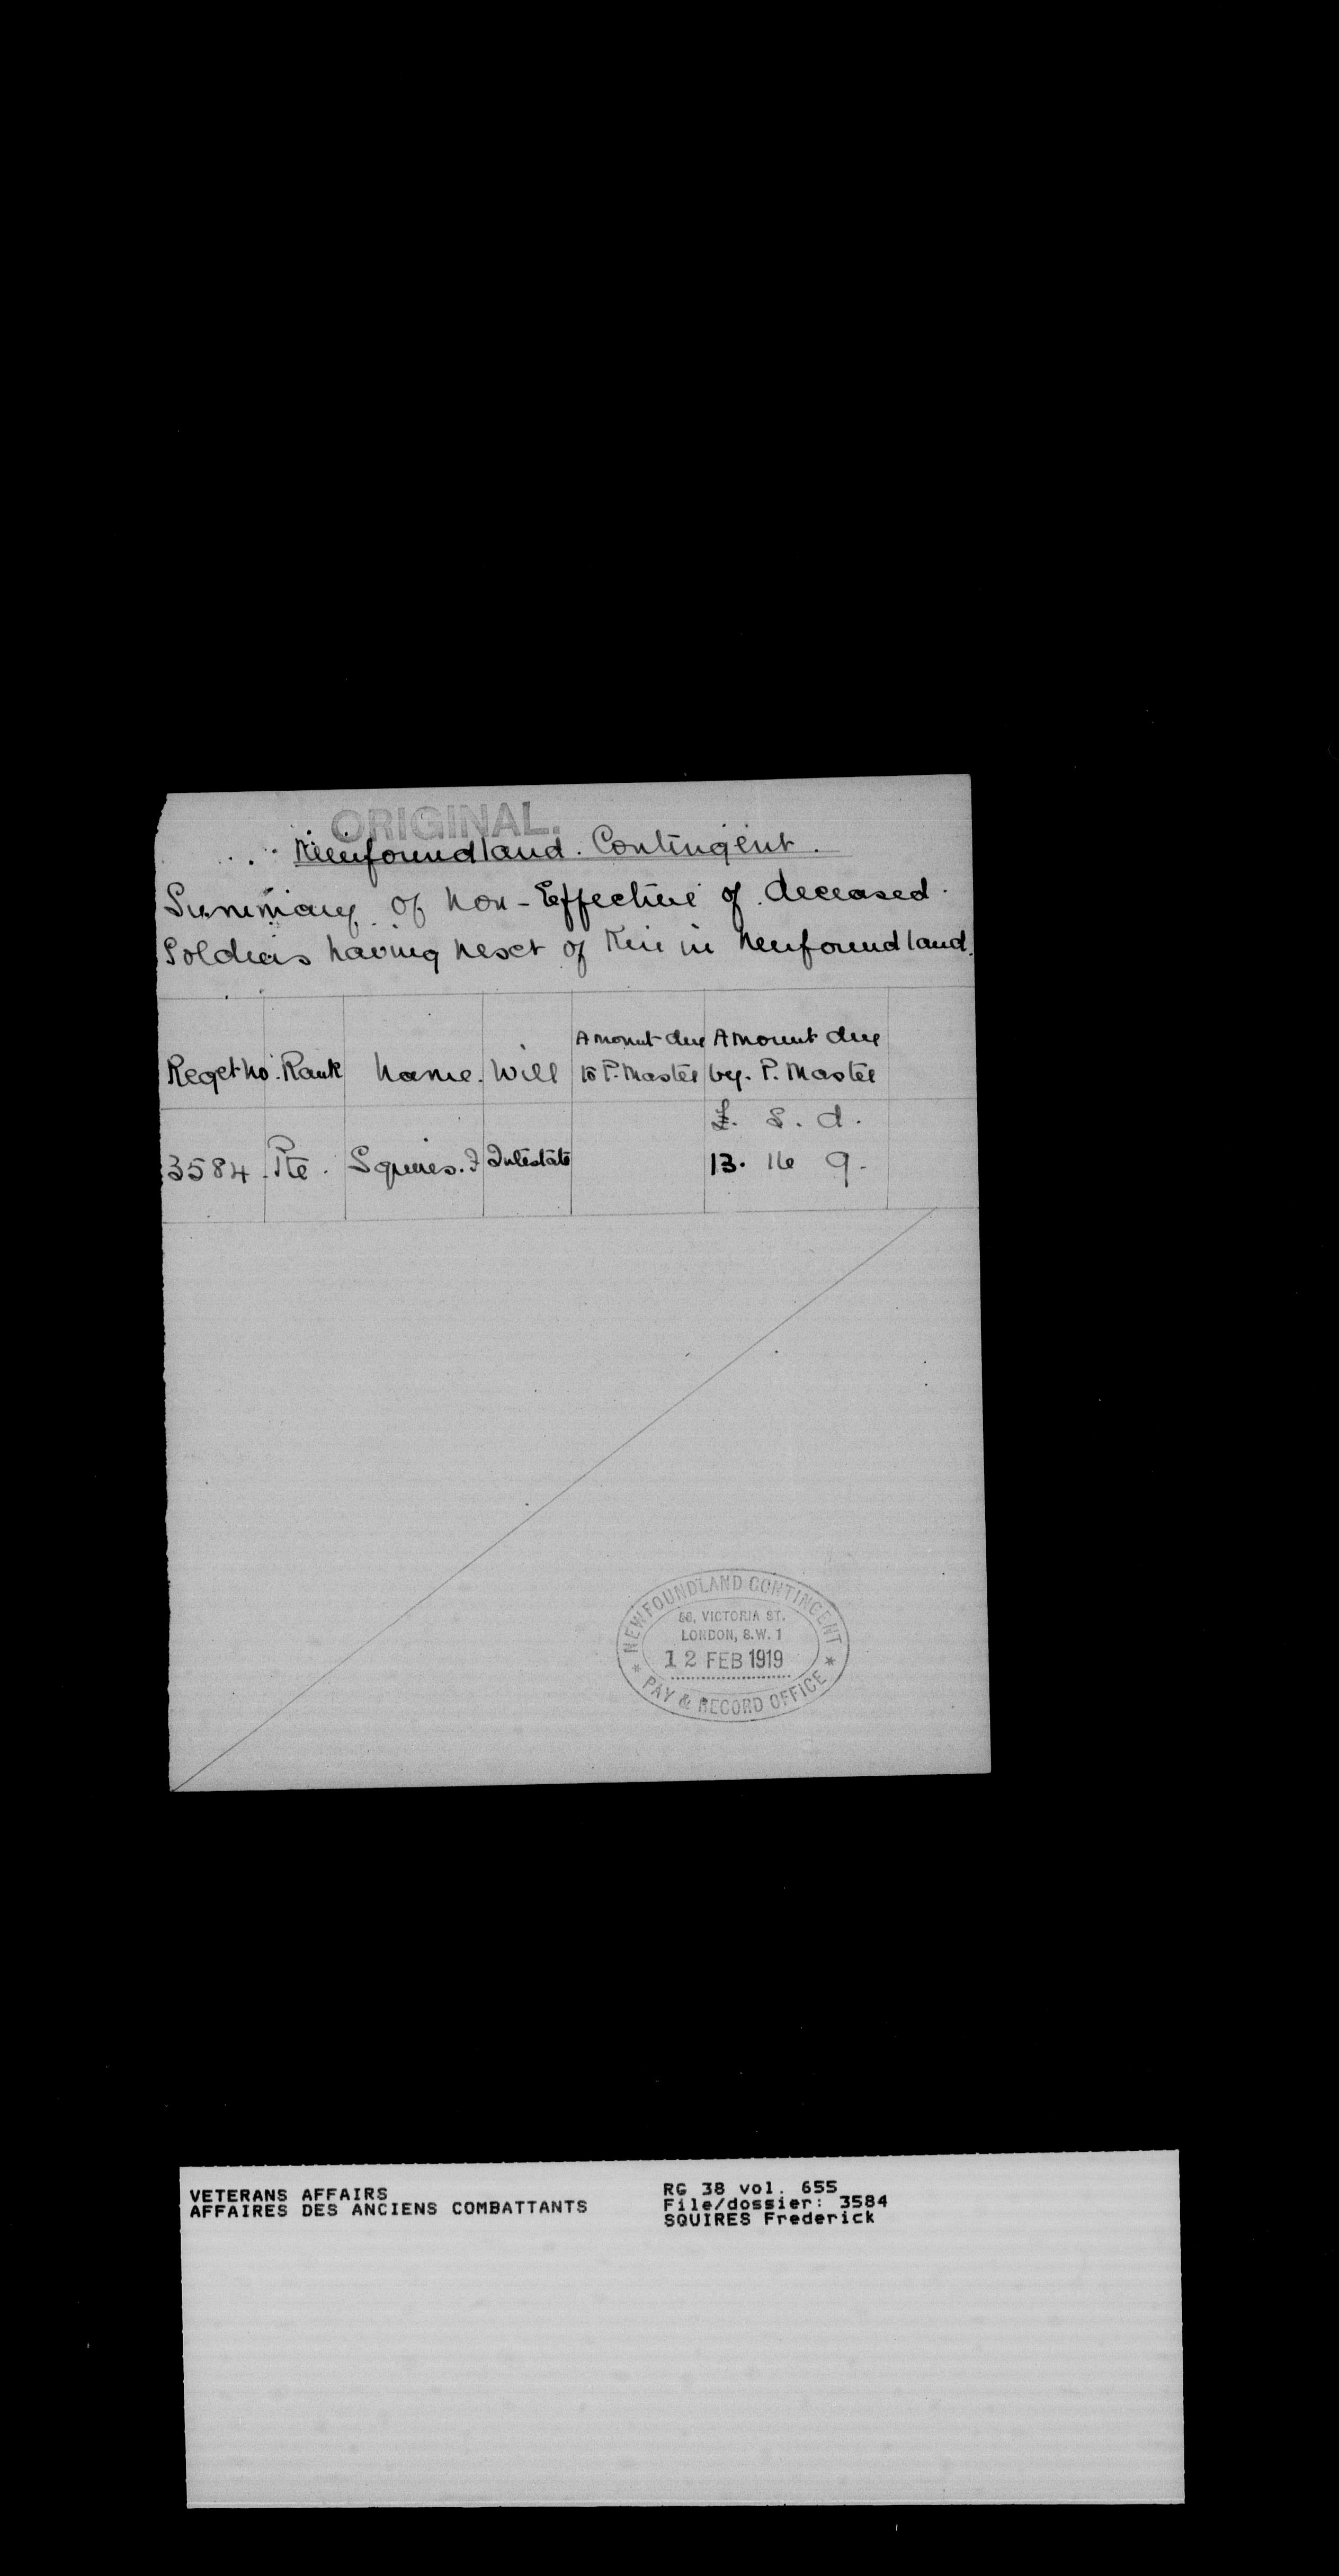 ORIGINAL.
Newfoundland. Contingent.
Summary of Non-Effective of deceased
Soldiers having next of Kin in Newfoundland.
Regetno. Rank Name. Will Amount due to P. Master Amount due by. P. Master
£. s. d.
3584. Pte. Squires. F Intestate 13. 16 9.
NEWFOUNDLAND CONTINGENT
58, VICTORIA ST.
LONDON, S.W. 1
12 FEB 1919
PAY & RECORD OFFICE
VETERANS AFFAIRS RG 38 vol. 655
AFFAIRES DES ANCIENS COMBATTANTS File/dossier: 3584
SQUIRES Frederick